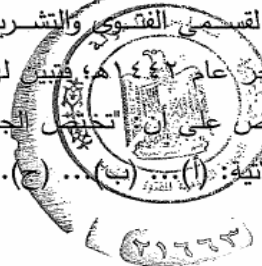 لقسمى الفتوى والتشريع
عام ١٤٤٢هـ؛ فتبين ل
على أن "تختص الج
تية: (أ)... (ب)... (ج)...
(٢١٦٦٣)